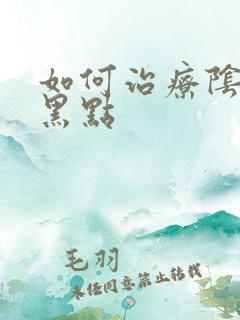 如何治療陰
黑點
毛羽
未任同意禁止轉載